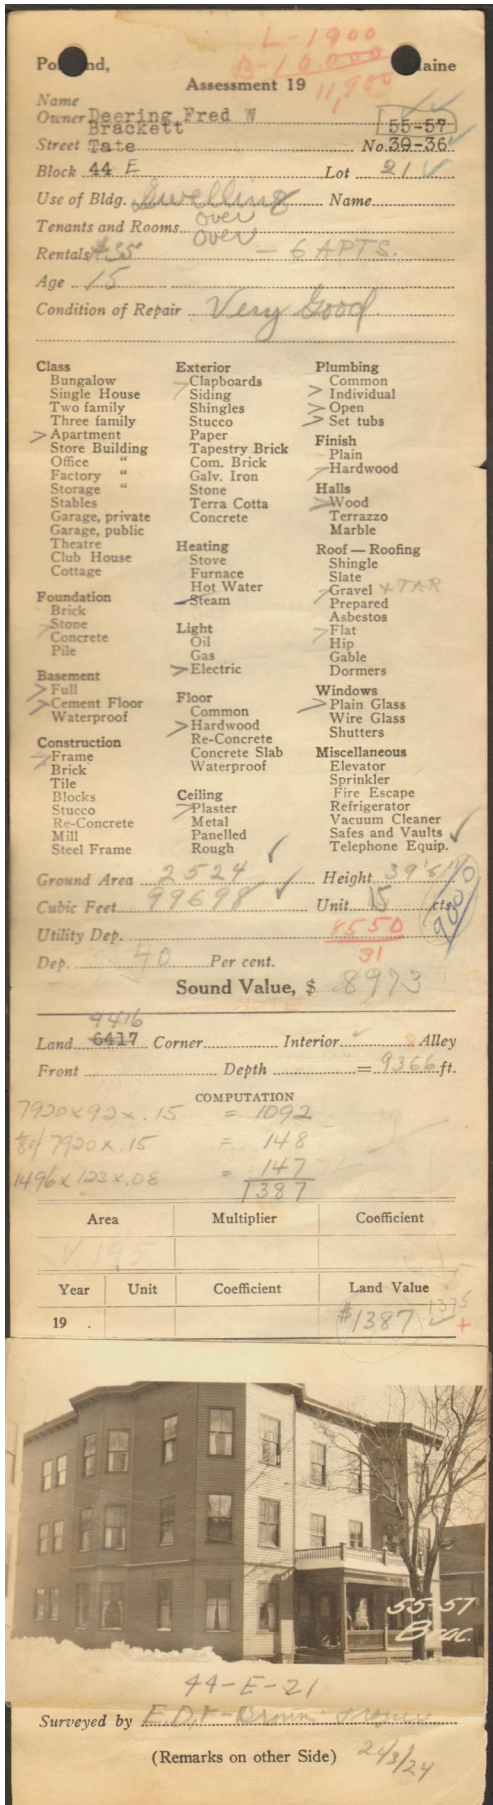 L-1900
B-10,000
11,900
Po nd, aine
Assessment 19
Name
Owner Deering Fred W
Brackett 55-57
Street Tate No. 30-36
Block 44 E Lot 21
Use of Bldg. Dwelling Name
Tenants and Rooms over
over
Rentals $35 - 6 APTS.
Age 15
Condition of Repair Very Good
Class
Bungalow
Single House
Two family
Three family
Apartment
Store Building
Office "
Factory "
Storage "
Stables
Garage, private
Garage, public
Theatre
Club House
Cottage
Foundation
Brick
Stone
Concrete
Pile
Basement
Full
Cement Floor
Waterproof
Construction
Frame
Brick
Tile
Blocks
Stucco
Re-Concrete
Mill
Steel Frame
Exterior
Clapboards
Siding
Shingles
Stucco
Paper
Tapestry Brick
Com. Brick
Galv. Iron
Stone
Terra Cotta
Concrete
Heating
Stove
Furnace
Hot Water
Steam
Light
Oil
Gas
Electric
Floor
Common
Hardwood
Re-Concrete
Concrete Slab
Waterproof
Ceiling
Plaster
Metal
Panelled
Rough
Plumbing
Common
Individual
Open
Set tubs
Finish
Plain
Hardwood
Halls
Wood
Terrazzo
Marble
Roof — Roofing
Shingle
Slate
Gravel + TAR
Prepared
Asbestos
Flat
Hip
Gable
Dormers
Windows
Plain Glass
Wire Glass
Shutters
Miscellaneous
Elevator
Sprinkler
Fire Escape
Refrigerator
Vacuum Cleaner
Safes and Vaults
Telephone Equip.
Ground Area 2524 Height 39'6"
Cubic Feet 99698 Unit 15 cts.
9000
Utility Dep. 8550
31
Dep. 40 Per cent.
Sound Value, $ 8973
9416
Land 6417 Corner Interior 8 Alley
Front Depth = 9366 ft.
COMPUTATION
7920 x 92 x .15 = 1092
7920 x .15 = 148
1496 x 123 x .08 = 147
1387
Area Multiplier Coefficient
Year Unit Coefficient Land Value
19 . $1387 1375 +
55-57
Brac.
44-E-21
Surveyed by E.D.F-Brown-
(Remarks on other Side) 24/3/24